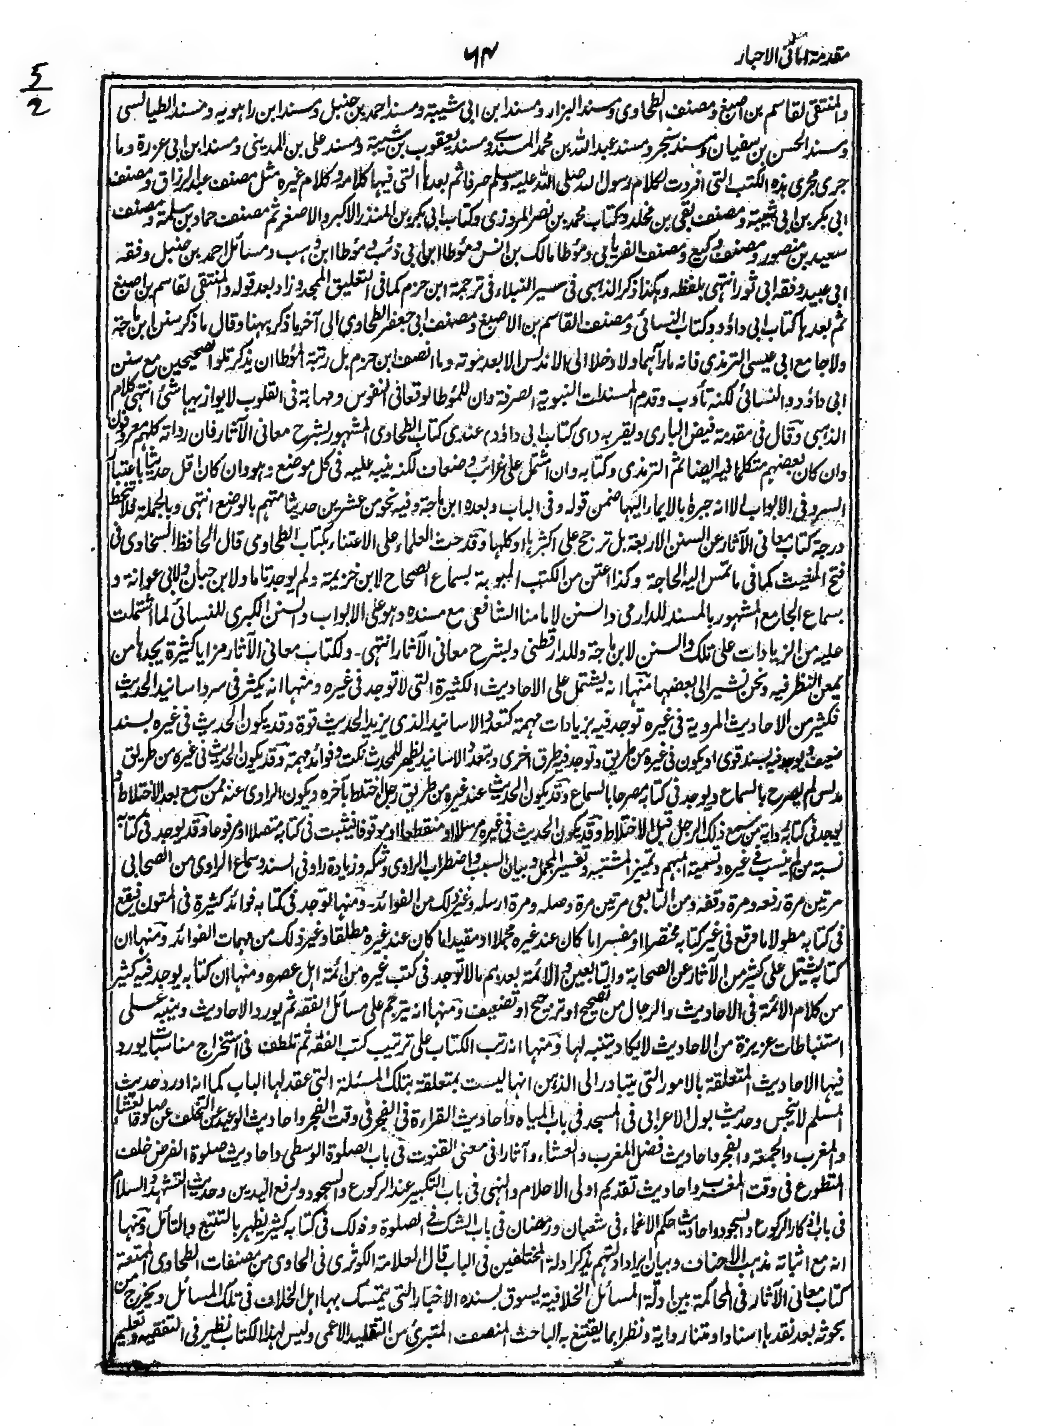 مقدمة امانی الاحبار
۶۴
5/2
والمنتقی لقاسم بن اصبغ ومصنف الطحاوی ومسند البزار ومسند ابن ابی شیبة ومسند احمد بن حنبل ومسند ابن راهویه ومسند الطیالسی
ومسند الحسن بن سفیان ومسند سنجر ومسند عبد الله بن محمد المسندی ومسند یعقوب بن شیبة ومسند علی بن المدینی ومسند ابن ابی غرزة وما
جری مجری هذه الکتب التی افردت لکلام رسول الله صلی الله علیه وسلم صرفا ثم بعدها التی فیها کلامه وکلام غیره مثل مصنف عبد الرزاق ومصنف
ابی بکر بن ابی شیبة ومصنف بقی بن مخلد وکتاب محمد بن نصر المروزی وکتاب ابی بکر بن المنذر الاکبر والاصغر ثم مصنف حماد بن سلمة ومصنف
سعید بن منصور ومصنف وکیع ومصنف الفریابی وموطا مالک بن انس وموطا ابن ابی ذئب وموطا ابن وهب ومسائل احمد بن حنبل وفقه
ابی عبید وفقه ابی ثور انتهی بلفظه وهکذا ذکر الذهبی فی سیر النبلاء فی ترجمة ابن حزم کما فی التعلیق الممجد وزاد بعد قوله والمنتقی لقاسم بن اصبغ
ثم بعدها کتاب ابی داؤد وکتاب النسائی ومصنف القاسم بن الاصبغ ومصنف ابی جعفر الطحاوی الی آخر ما ذکر ههنا وقال ما ذکر سنن ابن ماجة
ولا جامع ابی عیسی الترمذی فانه ما رآهما ولا دخلا الی الاندلس الا بعد موته وما انصف ابن حزم بل رتبة الموطا ان یذکر تلو الصحیحین مع سنن
ابی داؤد والنسائی لکنه تأدب وقدم المسندات النبویة الصرفة وان للموطا لوقعا فی النفوس ومهابة فی القلوب لا یوازیها شئ انتهی کلام
الذهبی وقال فی مقدمة فیض الباری ویقربه (ای کتاب ابی داؤد) عندی کتاب الطحاوی المشهور بشرح معانی الآثار فان رواته کلهم معروفون
وان کان بعضهم متکلما فیه ایضا ثم الترمذی وکتابه وان اشتمل علی غرائب وضعاف لکنه ینبه علیه فی کل موضع وهو وان کان اقل حدیثا باعتبار
السرد فی الابواب الا انه جبره بالایماء الیها ضمن قوله وفی الباب وبعده ابن ماجة وفیه نحو من عشرین حدیثا متهم بالوضع انتهی وبالجملة فلا تنحط
درجة کتاب معانی الآثار عن السنن الاربعة بل ترجح علی اکثرها او کلها وقد حث العلماء علی الاعتناء بکتاب الطحاوی قال الحافظ السخاوی فی
فتح المغیث کما فی ما تمس الیه الحاجة وکذا اعتن من الکتب المبوبة بسماع الصحاح لابن خزیمة ولم یوجد تاما ولابن حبان ولابی عوانة و
بسماع الجامع المشهور بالمسند للدارمی والسنن لامامنا الشافعی مع مسنده وهو علی الابواب والسنن الکبری للنسائی لما اشتملت
علیه من الزیادات علی تلک والسنن لابن ماجة وللدارقطنی ولشرح معانی الآثار انتهی۔ ولکتاب معانی الآثار مزایا کثیرة یجدها من
یمعن النظر فیه ونحن نشیر الی بعضها منها انه یشتمل علی الاحادیث الکثیرة التی لا توجد فی غیره ومنها انه یکثر فی سرد اسانید الحدیث
فکثیر من الاحادیث المرویة فی غیره توجد فیه بزیادات مهمة کتعدد الاسانید الذی یزید الحدیث قوة وقد یکون الحدیث فی غیره بسند
ضعیف ویوجد فیه بسند قوی او یکون فی غیره من طریق وتوجد فیه طرق اخری وبتعدد الاسانید یظهر للمحدث نکت وفوائد مهمة وقد یکون الحدیث فی غیره من طریق
مدلس لم یصرح بالسماع ویوجد فی کتابه مصرحا بالسماع وقد یکون الحدیث عند غیره من طریق رجل اختلط بآخره ویکون الراوی عنه ممن سمع بعد الاختلاط و
یوجد فی کتابه روایة من سمع ذلک الرجل قبل الاختلاط وقد یکون الحدیث فی غیره مرسلا او منقطعا او موقوفا فیثبت فی کتابه متصلا او مرفوعا وقد یوجد فی کتابه
نسبة من لم ینسب فی غیره وتسمیة المبهم وتمییز المشتبه وتفسیر المجمل وبیان السبب واضطراب الراوی وشکه وزیادة راو فی السند وسماع الراوی من الصحابی
مرتین مرة رفعه ومرة وقفه ومن التابعی مرتین مرة وصله ومرة ارسله وغیر ذلک من الفوائد۔ ومنها توجد فی کتابه فوائد کثیرة فی المتون فیقع
فی کتابه مطولا ما وقع فی غیر کتابه مختصرا او مفسرا ما کان عند غیره مجملا او مقیدا ما کان عند غیره مطلقا وغیر ذلک من مهمات الفوائد ومنها ان
کتابه یشتمل علی کثیر من الآثار عن الصحابة والتابعین والائمة بعدهم مالا توجد فی کتب غیره من ائمة اهل عصره ومنها ان کتابه یوجد فیه کثیرا
من کلام الائمة فی الاحادیث والرجال من تصحیح او ترجیح او تضعیف ومنها انه یترجم علی مسائل الفقه ثم یورد الاحادیث وینبه علی
استنباطات عزیزة من الاحادیث لا یکاد یتنبه لها ومنها انه رتب الکتاب علی ترتیب کتب الفقه ثم تلطف فی استخراج مناسبات یورد
فیها الاحادیث المتعلقة بالامور التی یتبادر الی الذهن انها لیست بمتعلقة بتلک المسئلة التی عقد لها الباب کما انه اورد حدیث
المسلم لا ینجس وحدیث بول الاعرابی فی المسجد فی باب المیاه واحادیث القراءة فی الفجر فی وقت الفجر واحادیث الوعید عن التخلف عن صلوة العشاء
والمغرب والجمعة والفجر واحادیث فضل المغرب والعشاء وآثارا فی معنی القنوت فی باب الصلوة الوسطی واحادیث صلوة الفرض خلف
المتطوع فی وقت المغرب واحادیث تقدیم اولی الاحلام والنهی فی باب التکبیر عند الرکوع والسجود ورفع الیدین وحدیث التشهد والسلام
فی باب اذکار الرکوع والسجود واحادیث حکم الاغماء فی شعبان ورمضان فی باب الشک فی الصلوة وذلک فی کتابه کثیر یظهر بالتتبع والتأمل ومنها
انه مع اثباته مذهب الاحناف وبیان ایراداتهم یذکر ادلة المختلفین فی الباب قال العلامة الکوثری فی الحاوی من مصنفات الطحاوی الممتعة
کتاب معانی الآثار فی المحاکمة بین ادلة المسائل الخلافیة یسوق بسنده الاخبار التی یتمسک بها اهل الخلاف فی تلک المسائل ویخرج من
بحوثه بعد نقدها اسنادا ومتنا روایة ونظرا بما یقتنع به الباحث المنصف المتبرئ من التقلید الاعمی ولیس لهذا الکتاب نظیر فی التفقیه وتعلیم